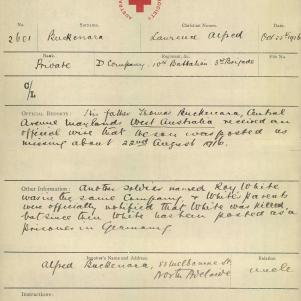 No. Surname. Christian Names. Date.
2601 Ruckenara Laurence Alfred Oct 25th 1916
Rank. Regiment, &c. File No.
Private D Company, 10th Battalion 3rd Brigade
C/L
OFFICIAL REPORTS: His father Thomas Ruckenara, Central
Avenue Maylands West Australia received an
official wire that his son was posted as
missing about 22nd August 1916.
Other Information: Another soldier named Roy White
was in the same Company, & White's parents
were officially notified that White was killed,
but since then White has been posted as a
prisoner in Germany.
Inquirer's Name and Address. Relation
Alfred Ruckenara, Melbourne St uncle
North Adelaide
Instructions: